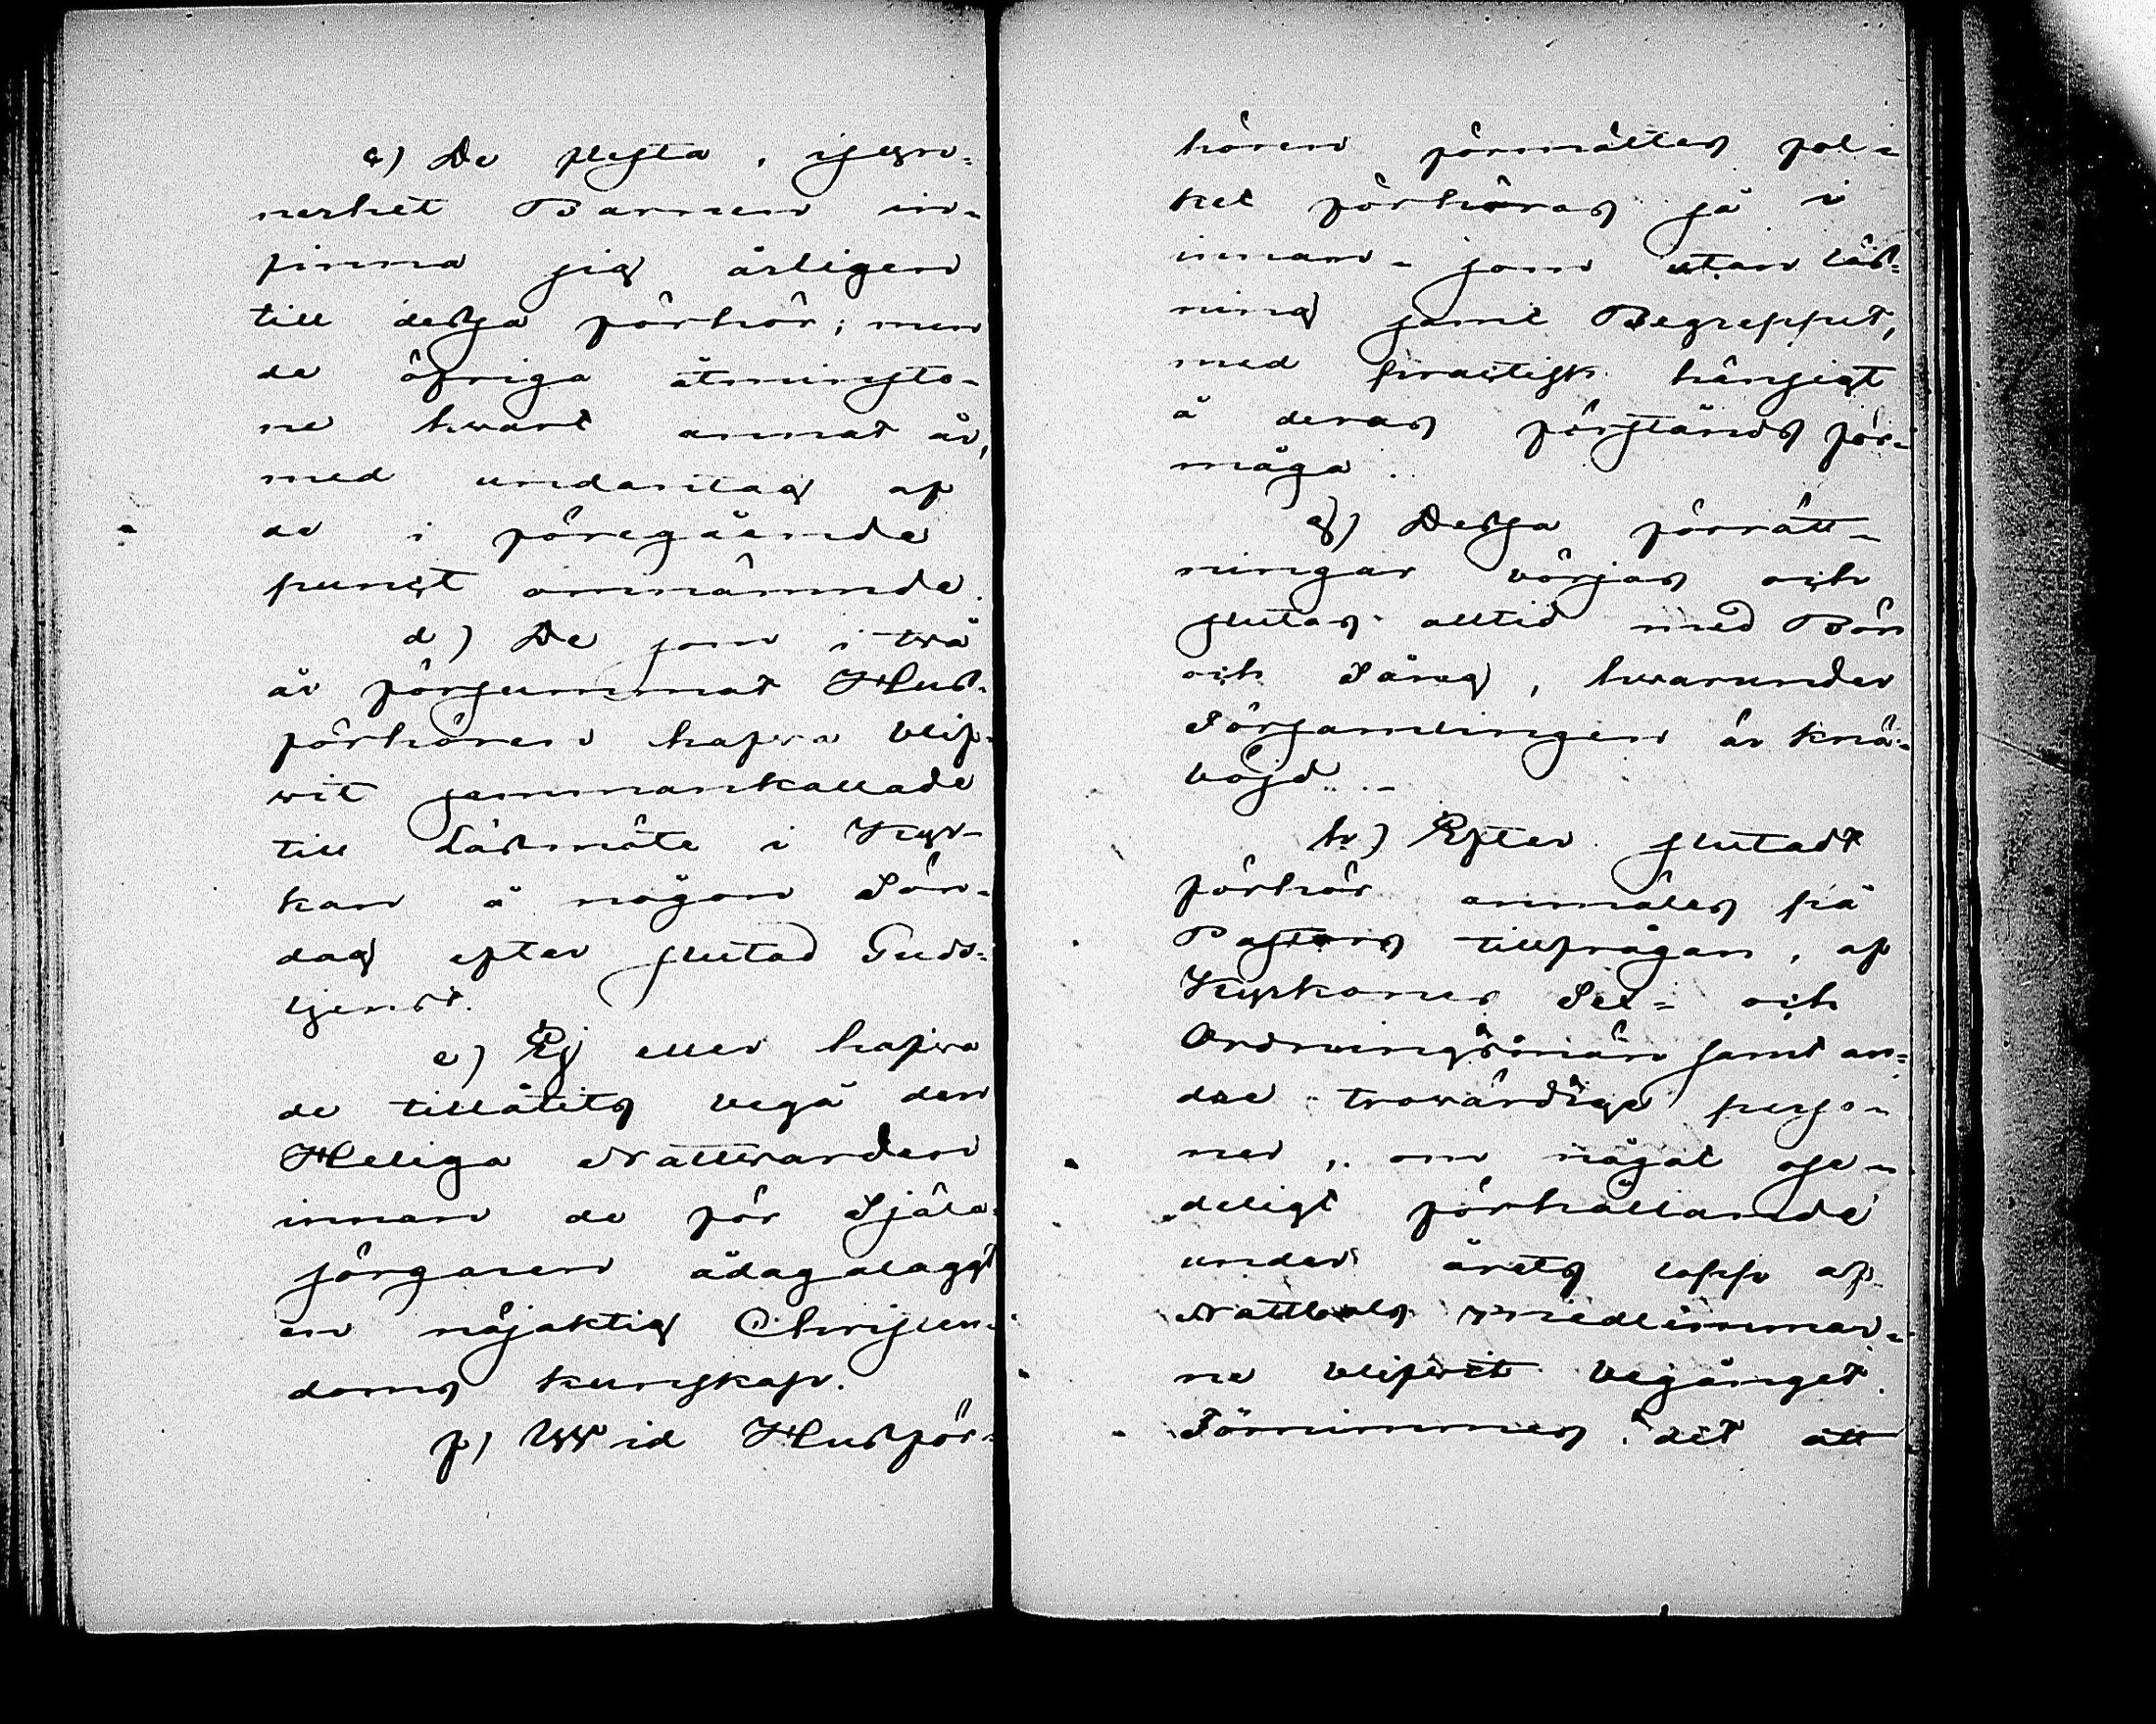 c) De flesta, isyn=
nerhet Barnen in=
finna sig årligen
till dessa förhör; men
de öfriga åtminsto=
ne hwart annat år,
med undantag af
de i föregående
punct omnämnde.
d) De som i twå
år försummat Hus=
förhören hafwa blif=
wit sammankallade
till Läsmöte i Kyr=
kan å någon Sön=
dag efter slutad Guds=
tjenst.
e) Ej eller hafwa
de tillåtits begå den
Heliga Nattwarden
innan de för Själa=
sörgaren ådagalaggt
en nöjaktig Christen=
doms kunskap.
f) Wid Husför=
hören förmältes fol=
ket förhöras så i
innan= som utan läs=
ning samt Begreppet,
med practisk hänsigt
å deras förstånds för=
måga.
g) Dessa förrätt=
ningar börjas och
slutas alltid med Bön
och Sång, hwarunder
Församlingen är knä=
böjd.
h) Efter slutadt
förhör anmäles på
Pastors tillfrågan, af
Kyrkones Sex= och
Ordningsmän samt an=
dre trowärdige perso=
ner, om något osе=
deligt förhållande
under årets lopp af
Nattbols medlemmar=
ne blifwit begånget.
Förnimmes det att